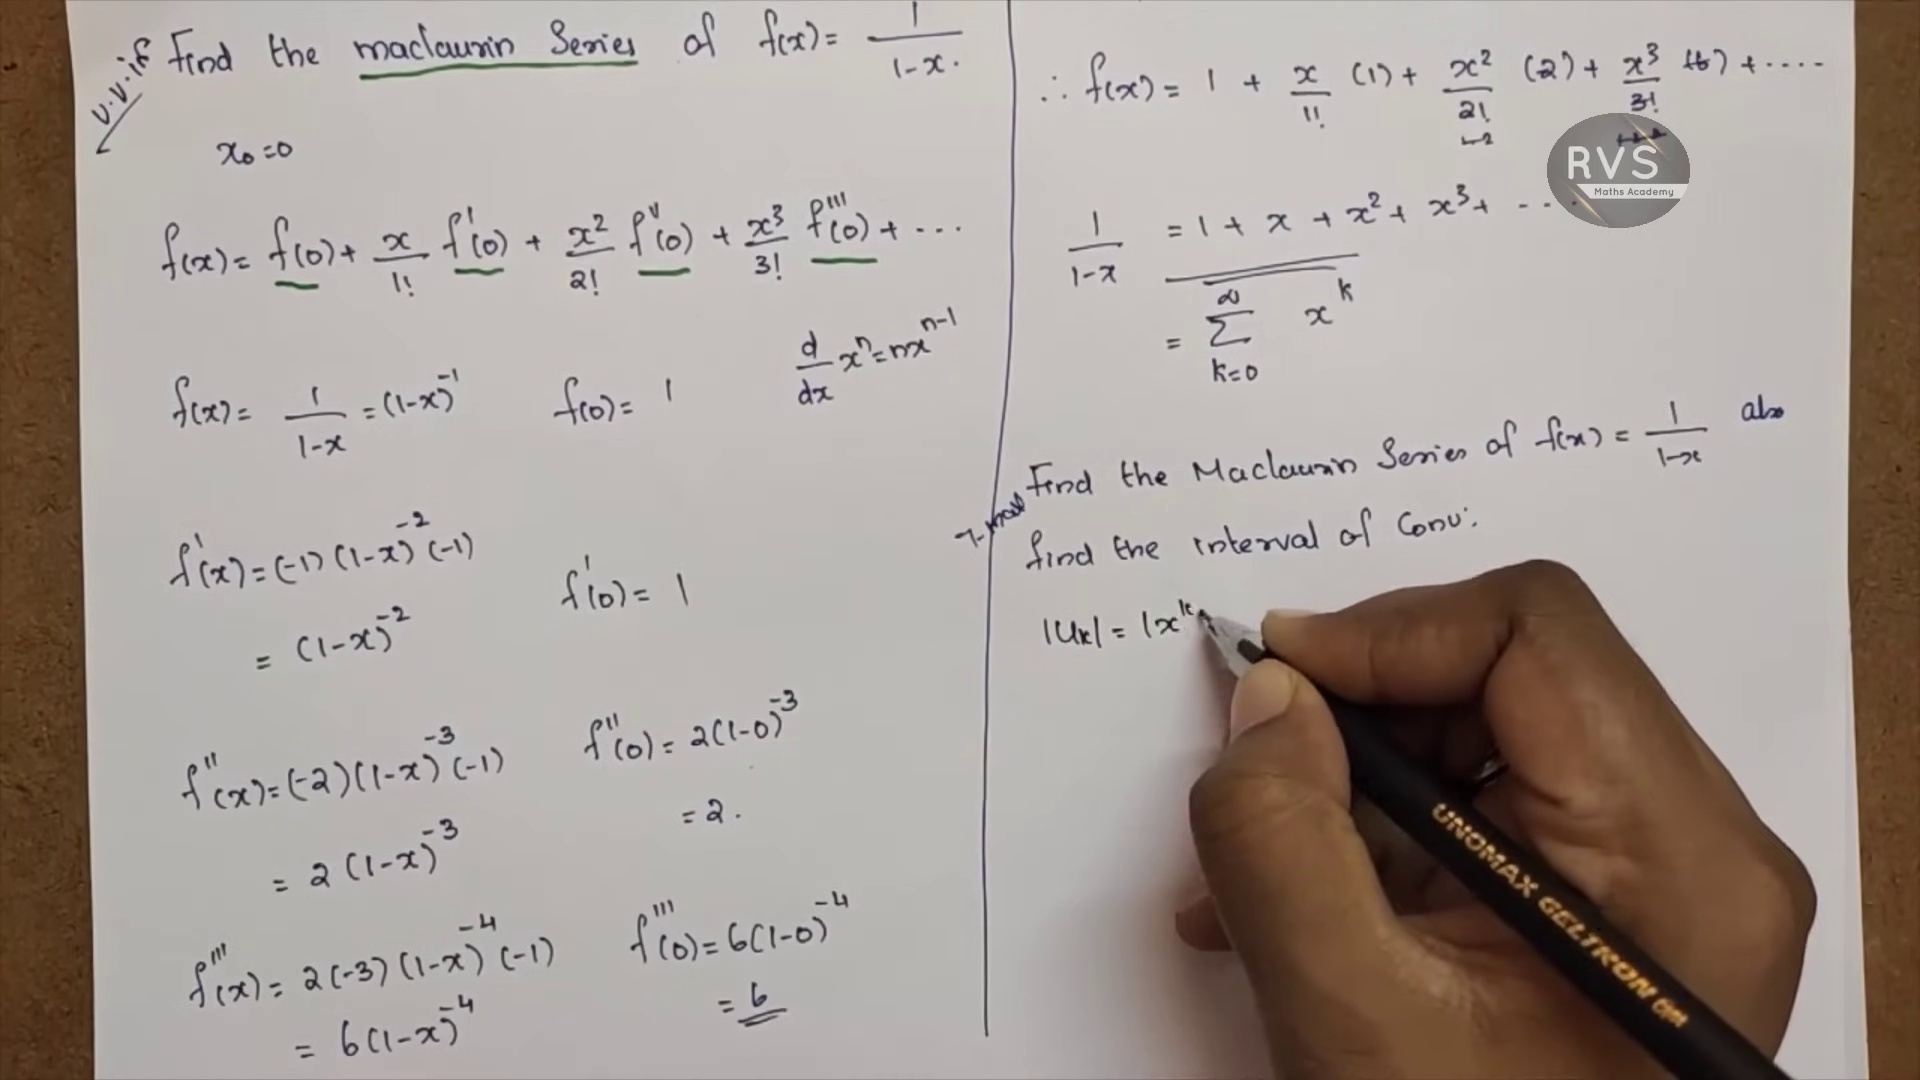 v.v.if Find the maclaurin Series of f(x) = 1/(1-x).
x₀ = 0
f(x) = f(0) + x/1! f'(0) + x²/2! f''(0) + x³/3! f'''(0) + ...
d/dx xⁿ = nxⁿ⁻¹
f(x) = 1/(1-x) = (1-x)⁻¹ f(0) = 1
f'(x) = (-1)(1-x)⁻²(-1)
= (1-x)⁻² f'(0) = 1
f''(x) = (-2)(1-x)⁻³(-1) f''(0) = 2(1-0)⁻³
= 2(1-x)⁻³ = 2.
f'''(x) = 2(-3)(1-x)⁻⁴(-1) f'''(0) = 6(1-0)⁻⁴
= 6(1-x)⁻⁴ = 6
∴ f(x) = 1 + x/1! (1) + x²/2! (2) + x³/3! (6) + ....
RVS
Maths Academy
1/(1-x) = 1 + x + x² + x³ + ...
= ∞ Σ k=0 xᵏ
Find the Maclaurin Series of f(x) = 1/(1-x) also
find the interval of Conv:
|Uk| = |xᵏ
UNOMAX GELTRON